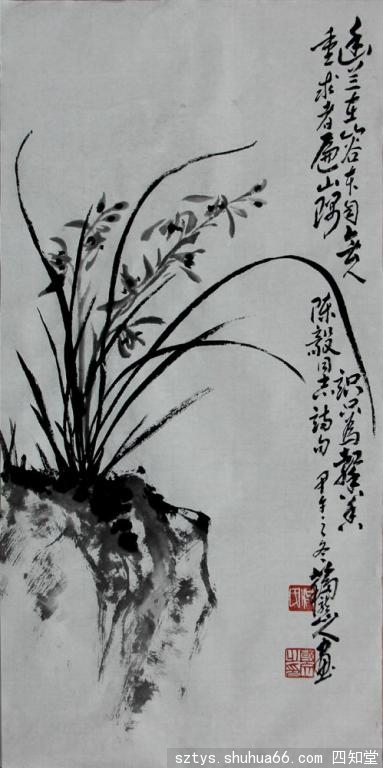 幽兰在山谷本自無人
識只為馨香
重求者遍山隅
陈毅同志詩句 甲午之冬
人画
sztys.shuhua66.com 四知堂